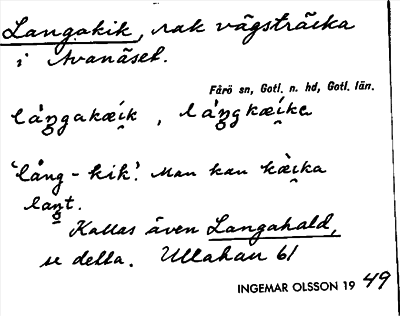 Langakik, rak vägsträcka
i Avanäset.
Fårö sn, Gotl. n. hd, Gotl. län.
lǻŋgakæi̯k, lǻŋgkæi̯ke
'lång-kik'. Man kan kæ̀i̯ka
laŋt.
Kallas även Langahald,
se detta. Ullahau 61
INGEMAR OLSSON 19 49